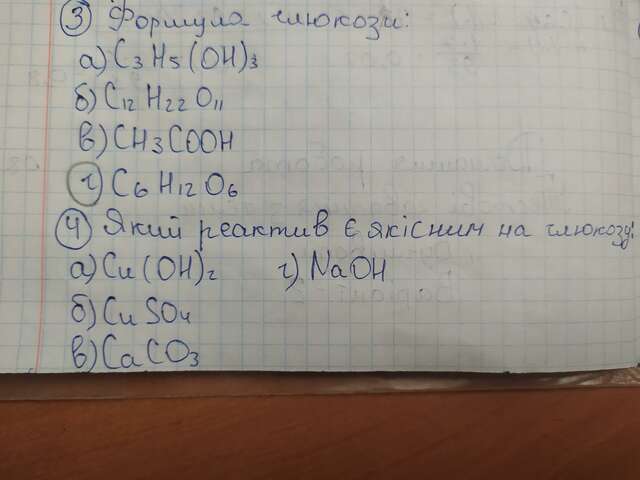 3 Формула глюкози:
а) C3H5(OH)3
б) C12H22O11
в) CH3COOH
г) C6H12O6
4 Який реактив є якісним на глюкозу:
а) Cu(OH)2 г) NaOH
б) CuSO4
в) CaCO3